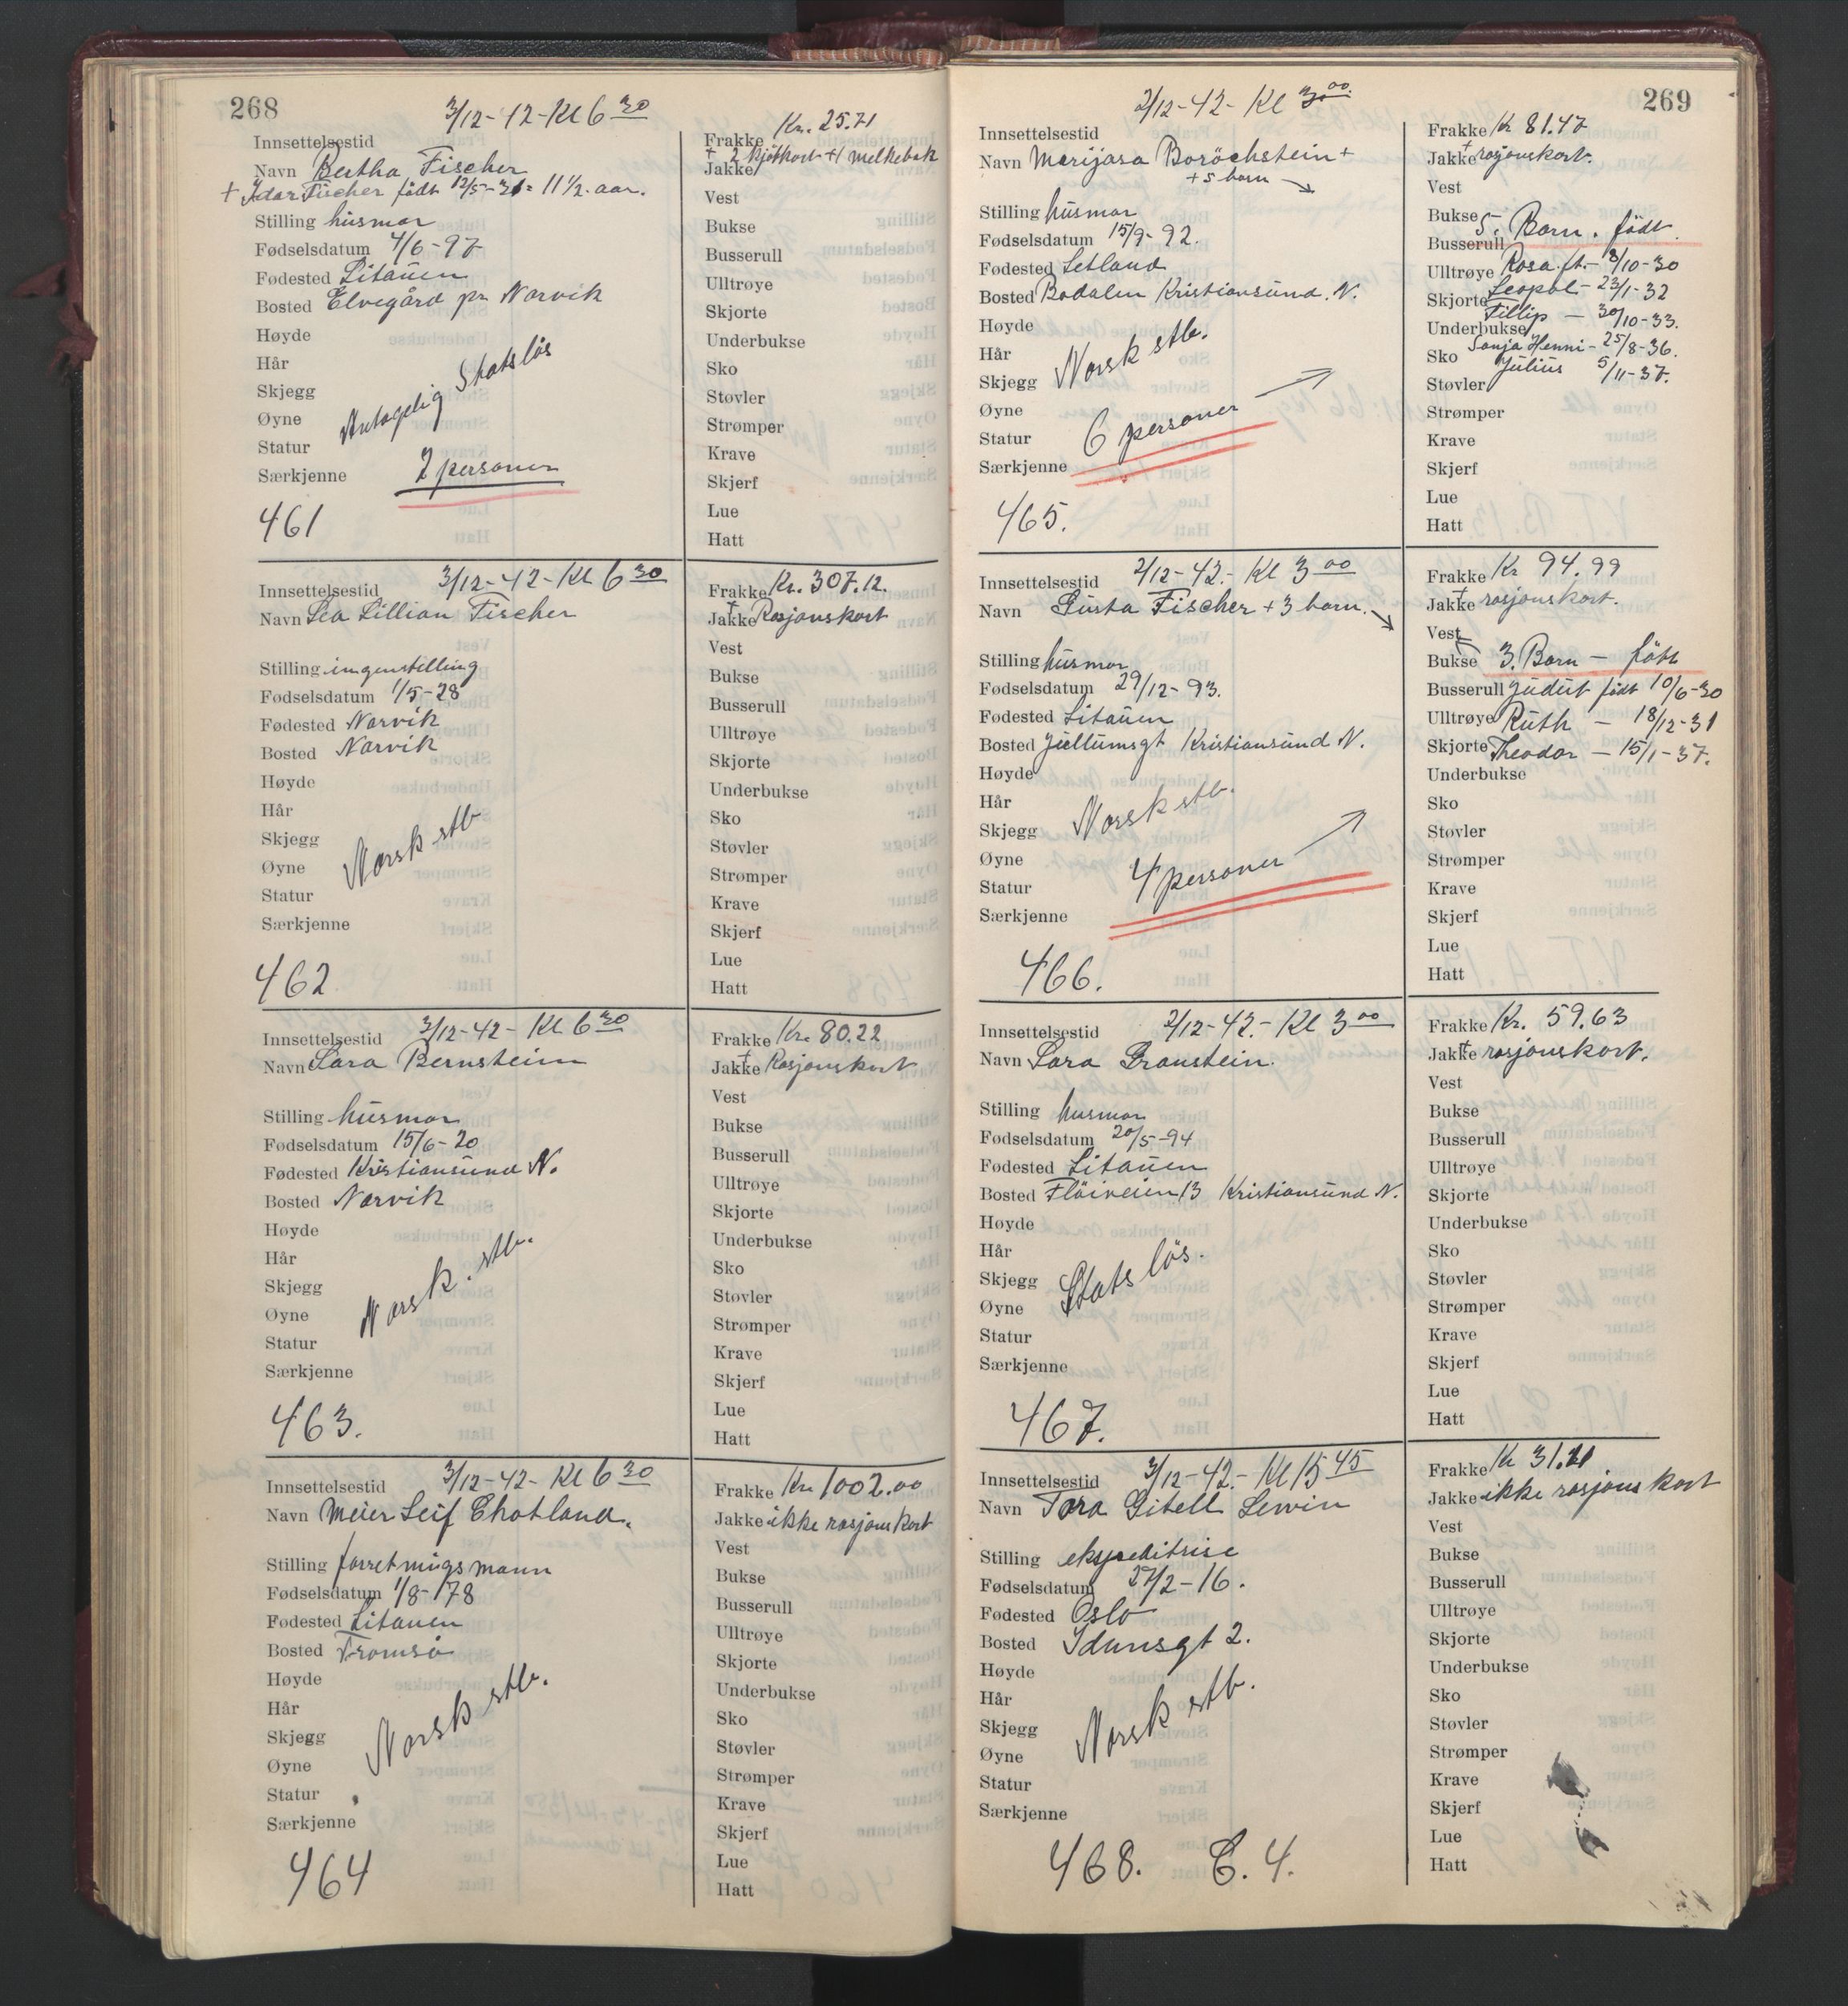 268
3/12-42-Kl 6 30
Innsettelsestid
Navn Bertha Fischer
+ Idar Fischer født 12/5-31= 11 1/2. aar.
Stilling husmor
Fødselsdatum 4/6-97
Fødested Litauen
Bosted Elvegård pr. Narvik
Høyde
Hår
Skjegg
Øyne
Statur
Særkjenne
Antagelig Statsløs
2 personer
461
Kr. 25.71
Frakke
+ 2 kjøtkort +1 melkebok
Jakke
Vest
Bukse
Busserull
Ulltrøye
Skjorte
Underbukse
Sko
Støvler
Strømper
Krave
Skjerf
Lue
Hatt
Innsettelsestid 3/12-42-Kl 6 30
Navn Lea Lillian Fischer
Stilling ingenstilling
Fødselsdatum 1/5-28
Fødested Narvik
Bosted Narvik
Høyde
Hår
Skjegg
Øyne
Statur
Særkjenne
Norsk stb
462
Frakke Kr. 307.12.
+
Jakke Rasjonskort
Vest
Bukse
Busserull
Ulltrøye
Skjorte
Underbukse
Sko
Støvler
Strømper
Krave
Skjerf
Lue
Hatt
Innsettelsestid 3/12-42- Kl 6 30
Navn Sara Bernstein
Stilling husmor
Fødselsdatum 15/6-20
Fødested Kristiansund N.
Bosted Narvik
Høyde
Hår
Skjegg
Øyne
Statur
Særkjenne
Norsk. stb.
463.
Frakke Kr. 80.22
+
Jakke Rasjonskort
Vest
Bukse
Busserull
Ulltrøye
Skjorte
Underbukse
Sko
Støvler
Strømper
Krave
Skjerf
Lue
Hatt
Innsettelsestid 3/12-42- Kl 6 30
Navn Meier Leif Shotland.
Stilling forretnigsmann
Fødselsdatum 1/8-178
Fødested Litauen
Bosted Tromsø
Høyde
Hår
Skjegg
Øyne
Statur
Særkjenne
Norsk stb.
464
Frakke Kr. 1002.00
Jakke ikke rasjonskort
Vest
Bukse
Busserull
Ulltrøye
Skjorte
Underbukse
Sko
Støvler
Strømper
Krave
Skjerf
Lue
Hatt
269
2/12-42- Kl 3.00.
Innsettelsestid
Navn Marijasa Borochstein +
+ 5 barn
Stilling husmor
Fødselsdatum 15/9-92.
Fødested Letland
Bosted Bodalen Kristiansund. N.
Høyde
Hår
Skjegg
Øyne
Statur
Særkjenne
Norsk stb.
6 personer
465.
Frakke Kr 81.47
+
Jakke rasjonskort.
Vest
Bukse
5. Barn. født.
Busserull
Ulltrøye Rosa ft.- 8/10-30
Leopol - 23/1-32
Skjorte
Fillip - 30/10-33.
Underbukse
Sonja Henni - 25/8-36.
Sko
Julius 5/11-37.
Støvler
Strømper
Krave
Skjerf
Lue
Hatt
Innsettelsestid 2/12-42.- Kl 3 00
Navn Gusta Fischer + 3 barn.
Stilling husmor
Fødselsdatum 29/12-93.
Fødested Litauen
Bosted Kristiansund N.
Høyde
Hår
Skjegg
Øyne
Statur
Særkjenne
Norsk stb.
4 personer
466.
Frakke Kr 94.99
+
Jakke rasjonskort.
Vest
Bukse 3. Barn - født
Busserull Judit født 10/6-30
Ulltrøye Ruth - 18/12-31
Skjorte Theodor - 15/1-37.
Underbukse
Sko
Støvler
Strømper
Krave
Skjerf
Lue
Hatt
Innsettelsestid 2/12-42.- Kl 3 00
Navn Sara Granstein.
Stilling husmor
Fødselsdatum 20/5-94
Fødested Litauen
Bosted Fløiveien 13 Kristiansund N.
Høyde
Hår
Skjegg
Øyne
Statur
Særkjenne
Statsløs.
467.
Frakke Kr. 59.63
+
Jakke rasjonskort.
Vest
Bukse
Busserull
Ulltrøye
Skjorte
Underbukse
Sko
Støvler
Strømper
Krave
Skjerf
Lue
Hatt
Innsettelsestid 3/12-42.- Kl 15 45
Navn Tora Gitell Lewin
Stilling ekspeditrise
Fødselsdatum 27/2-16.
Fødested Oslo
Bosted Idunsgt 2.
Høyde
Hår
Skjegg
Øyne
Statur
Særkjenne
Norsk stb.
468. C. 4.
Frakke Kr 31.21
Jakke ikke rasjonskort
Vest
Bukse
Busserull
Ulltrøye
Skjorte
Underbukse
Sko
Støvler
Strømper
Krave
Skjerf
Lue
Hatt